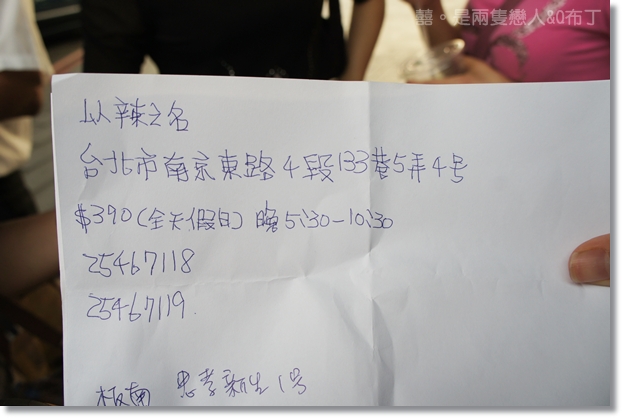 囍。是兩隻戀人&Q布丁
以辣之名
台北市南京東路4段133巷5弄4号
$390(全天假日) 晚5:30-10:30
25467118
25467119
板南 忠孝新生1号